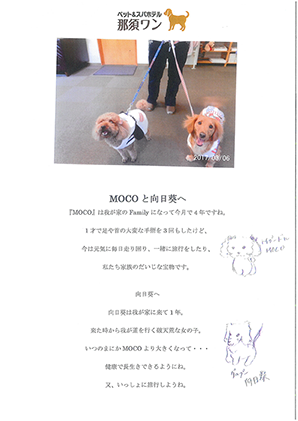 ペット&スパホテル
那須ワン
2017/03/06
MOCOと向日葵へ
『MOCO』は我が家のFamilyになって今月で4年ですね。
1才で足や首の大変な手術を3回もしたけど、
今は元気に毎日走り回り、一緒に旅行をしたり、
私たち家族のだいじな宝物です。
MOCO
向日葵へ
向日葵は我が家に来て1年。
来た時から我が道を行く破天荒な女の子。
いつのまにかMOCOより大きくなって・・・
健康で長生きできるようにね。
又、いっしょに旅行しようね。
向日葵